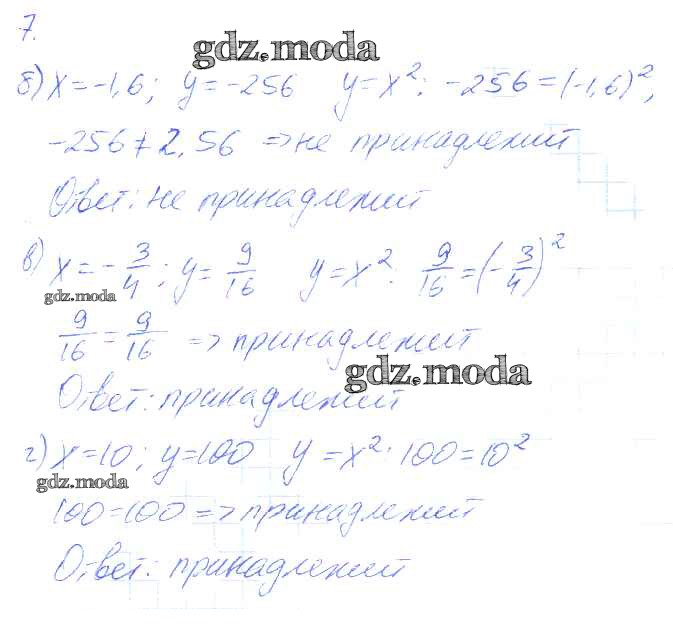 7.
gdz.moda
б) x=-1,6; y=-256 y=x²; -256=(-1,6)²,
-256≠2,56 => не принадлежит
Ответ: не принадлежит
в) x=-3/4; y=9/16 y=x²: 9/16=(-3/4)²
gdz.moda
9/16=9/16 => принадлежит
gdz.moda
Ответ: принадлежит
г) x=10; y=100 y=x²: 100=10²
gdz.moda
100=100 => принадлежит
Ответ: принадлежит